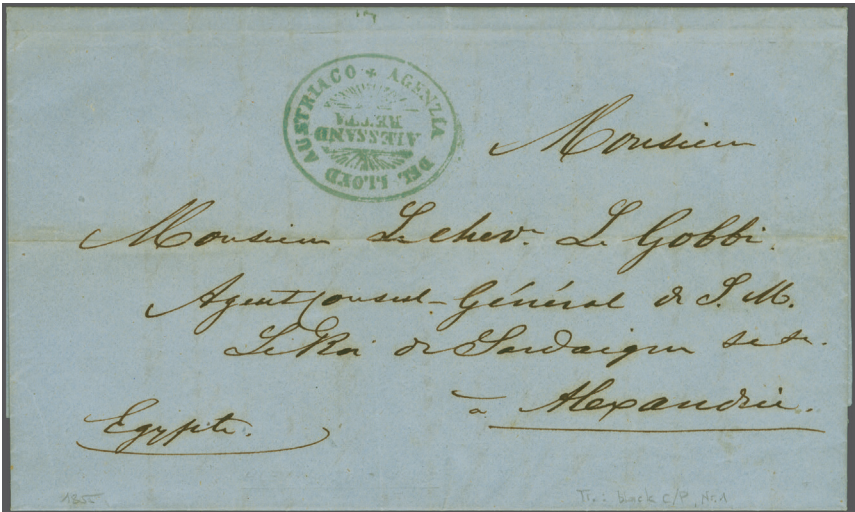 AGENZIA DEL LLOYD AUSTRIACO
ALESSAND
RETTA
Monsieur
Monsieur Le chevr. L. Gobbi.
Agent Consul-Général de S. M.
Le Roi de Sardaigne
à Alexandrie.
Egypte.
1855
black C/P, Nr. 1